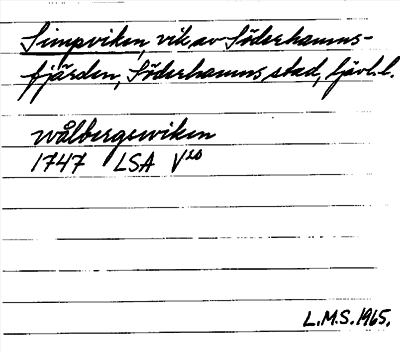 Simpviken, vik av Söderhamns-
fjärden, Söderhamns stad, Gävl.l.
Wålbergswiken
1747 LSA V20
L.M.S. 1965.